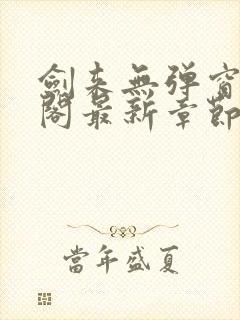 劍来無弹窗
閣最新章節
當年盛夏